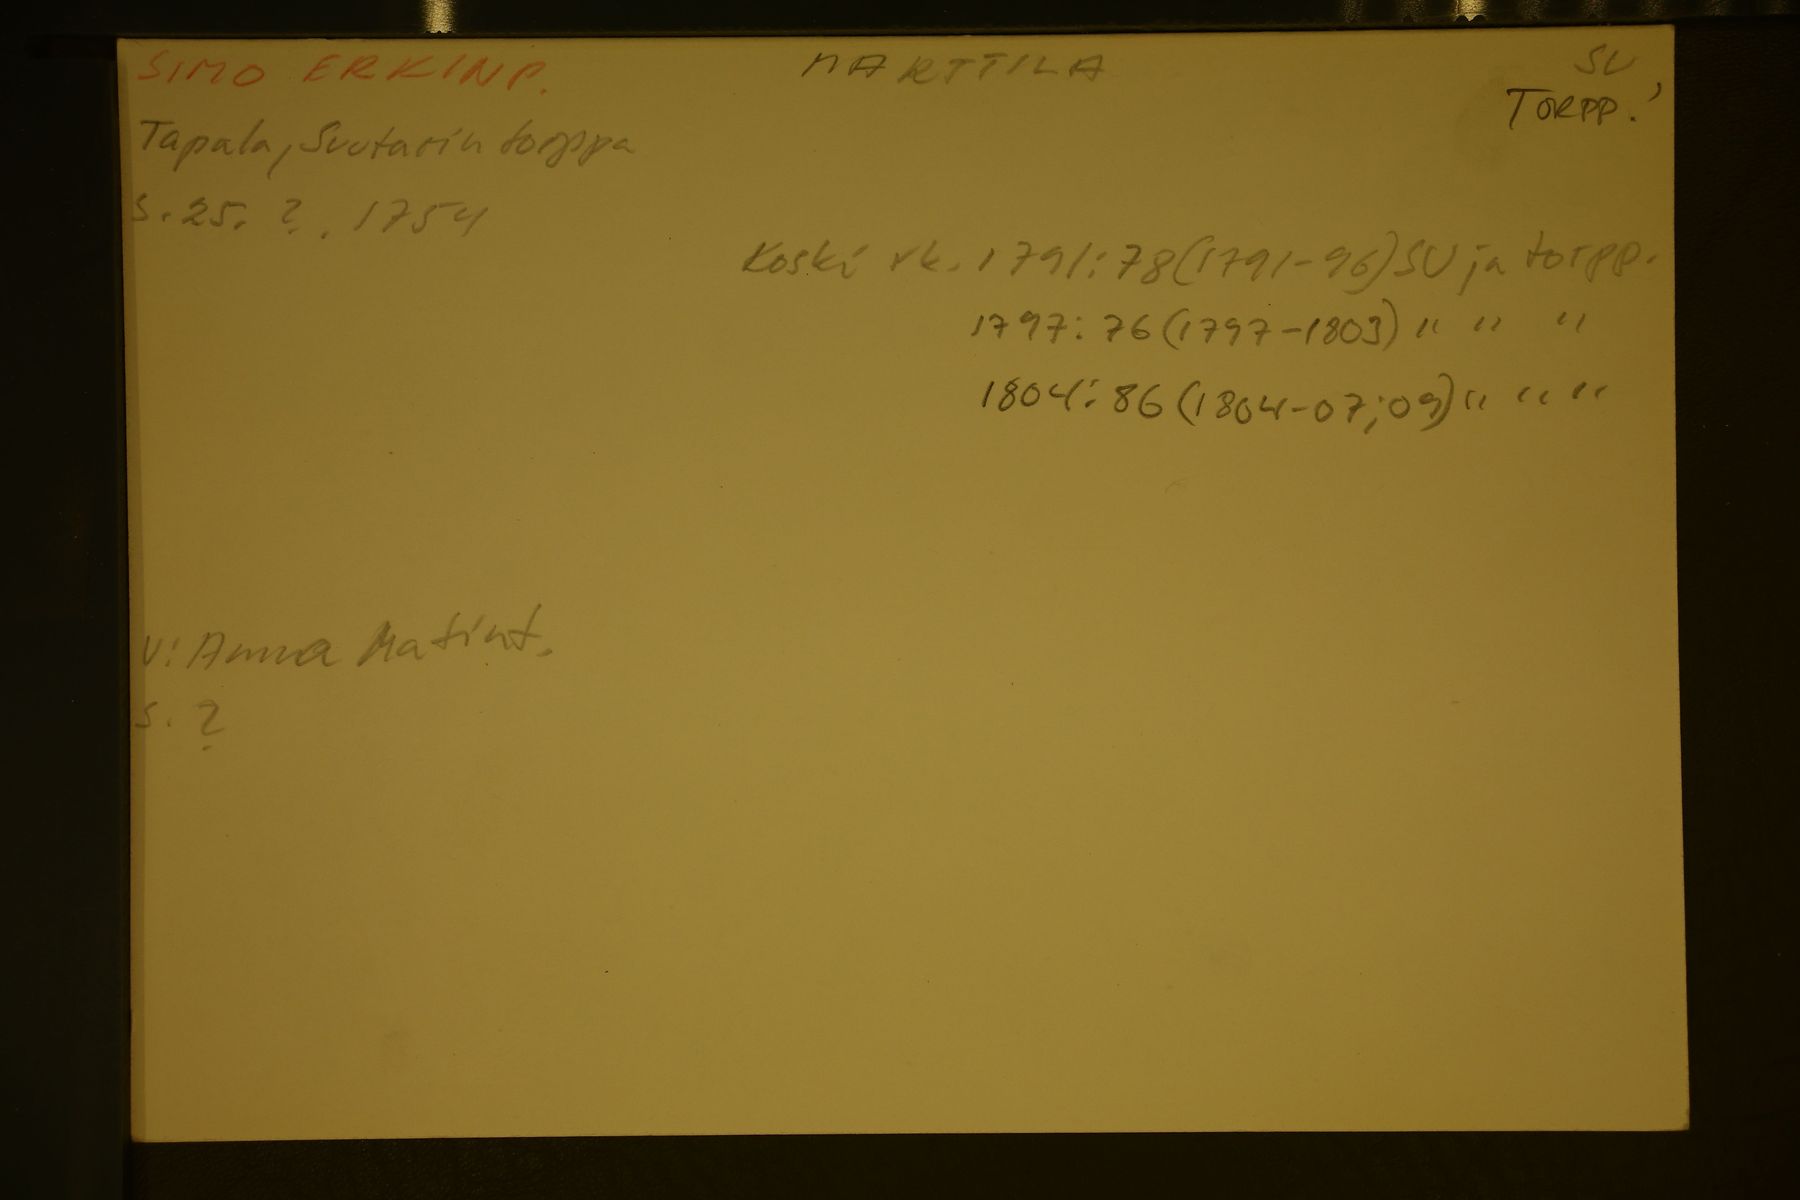 SIMO ERKINP. MARTTILA SU
TORPP.'
Tapala, Suutarin torppa
s. 25. ?. 1754
Koski rk. 1791: 78 (1791-96) SU ja torpp.
1797: 76 (1797-1803) " " "
1804: 86 (1804-07; 09) " " "
V: Anna Matint.
s. ?